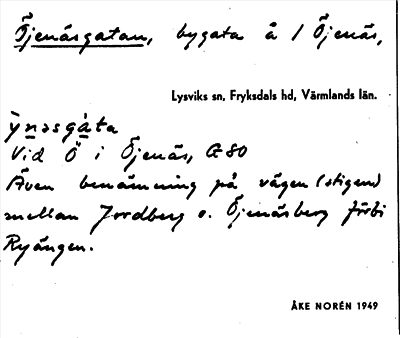 Öjenäsgatan, bygata å 1 Öjenäs,
Lysviks sn, Fryksdals hd, Värmlands län.
ỳnəsgàta
Vid Ö i Öjenäs, G 80
Även benämning på vägen (stigen)
mellan Jordberg o. Öjenäsberg förbi
Ryängen.
ÅKE NORÉN 1949